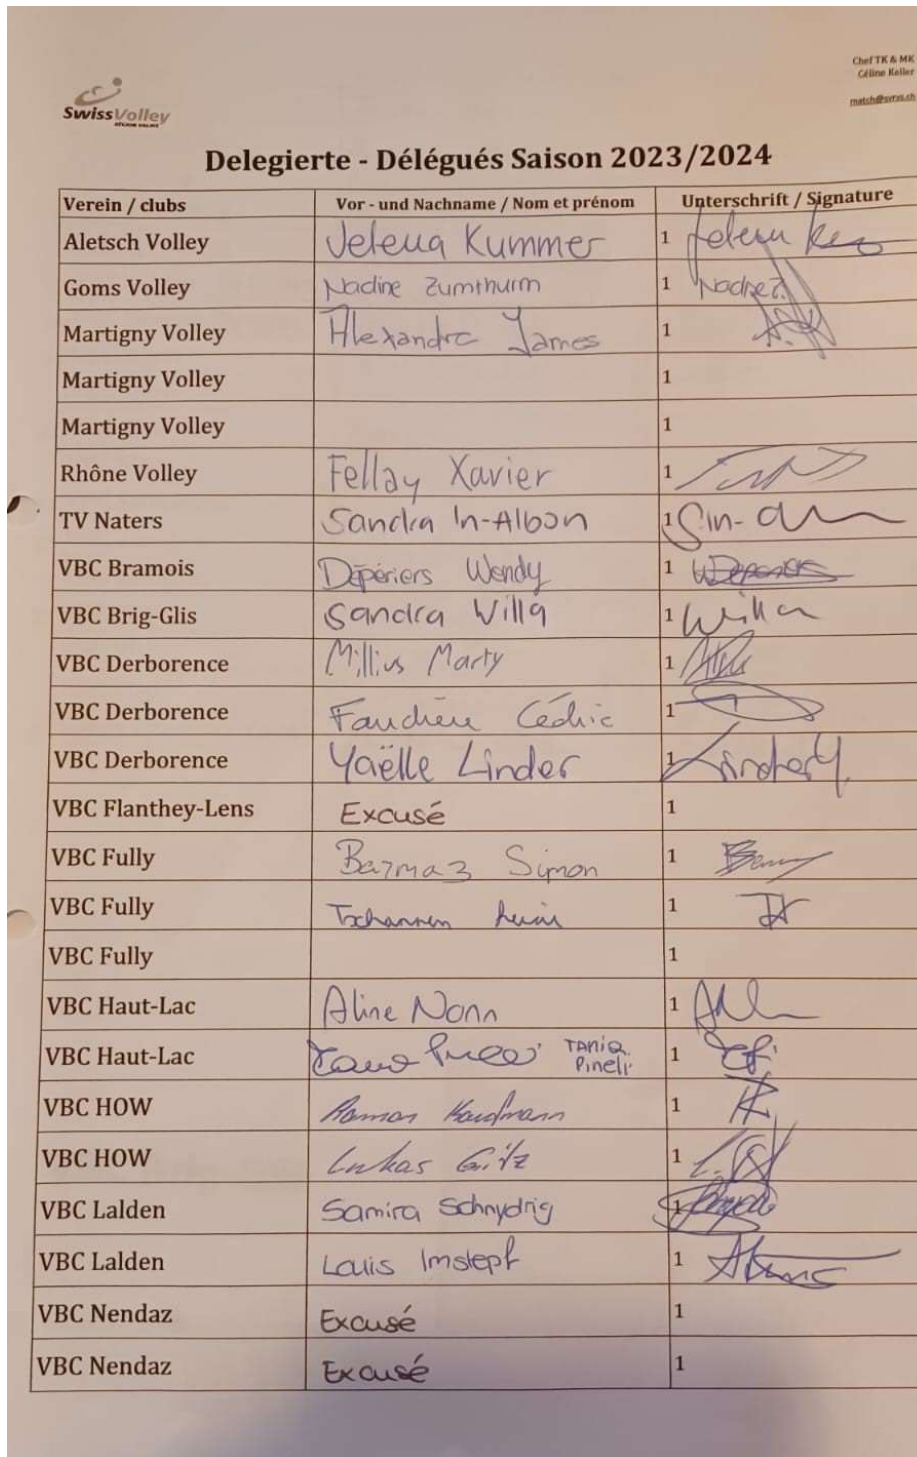 Chef TK & MK
Céline Keller
match@svrvs.ch
SwissVolley
Delegierte - Délégués Saison 2023/2024
Verein / clubs Vor - und Nachname / Nom et prénom Unterschrift / Signature
Aletsch Volley Jelena Kummer 1
Goms Volley Nadine Zumthurm 1 Nadine Z.
Martigny Volley Alexandra James 1
Martigny Volley 1
Martigny Volley 1
Rhône Volley Fellay Xavier 1
TV Naters Sandra In-Albon 1
VBC Bramois Dépériers Wendy 1
VBC Brig-Glis Sandra Willa 1 Willa
VBC Derborence Millius Marty 1
VBC Derborence Fauchère Cédric 1
VBC Derborence Yaëlle Linder 1 Linder Y
VBC Flanthey-Lens Excusé 1
VBC Fully Bazmaz Simon 1
VBC Fully Tschannen 1
VBC Fully 1
VBC Haut-Lac Aline Nann 1
VBC Haut-Lac TANIA Pineli 1
VBC HOW Kaufmann 1
VBC HOW Lukas 1
VBC Lalden Samira Schnydrig 1
VBC Lalden Louis Imstepf 1
VBC Nendaz Excusé 1
VBC Nendaz Excusé 1